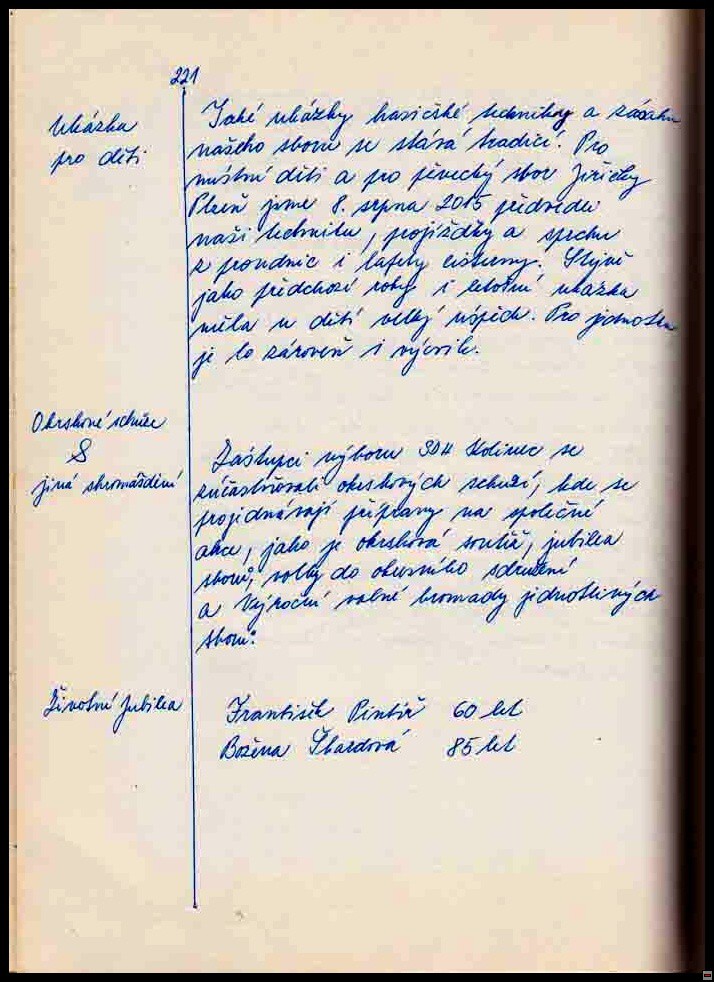 221
Ukázka
pro děti
Také ukázky hasičské techniky a zásahu
našeho sboru se stává tradicí. Pro
místní děti a pro pěvecký sbor Jiřičky
Plzeň jsme 8. srpna 2015 předvedli
naši techniku, projížďky a sprchu
z proudnic i lafety cisterny. Stejně
jako předchozí roky i letošní ukázka
měla u dětí velký úspěch. Pro jednotku
je to zároveň i výcvik.
Okrskové schůze
&
jiná shromáždění
Zástupci výboru SDH Kolinec se
zúčastňovali okrskových schůzí, kde se
projednávají přípravy na společné
akce, jako je okrsková soutěž, jubilea
sborů, volby do okresního sdružení
a Výroční valné hromady jednotlivých
sborů.
Životní jubilea
František Pintíř 60 let
Božena Škardová 85 let